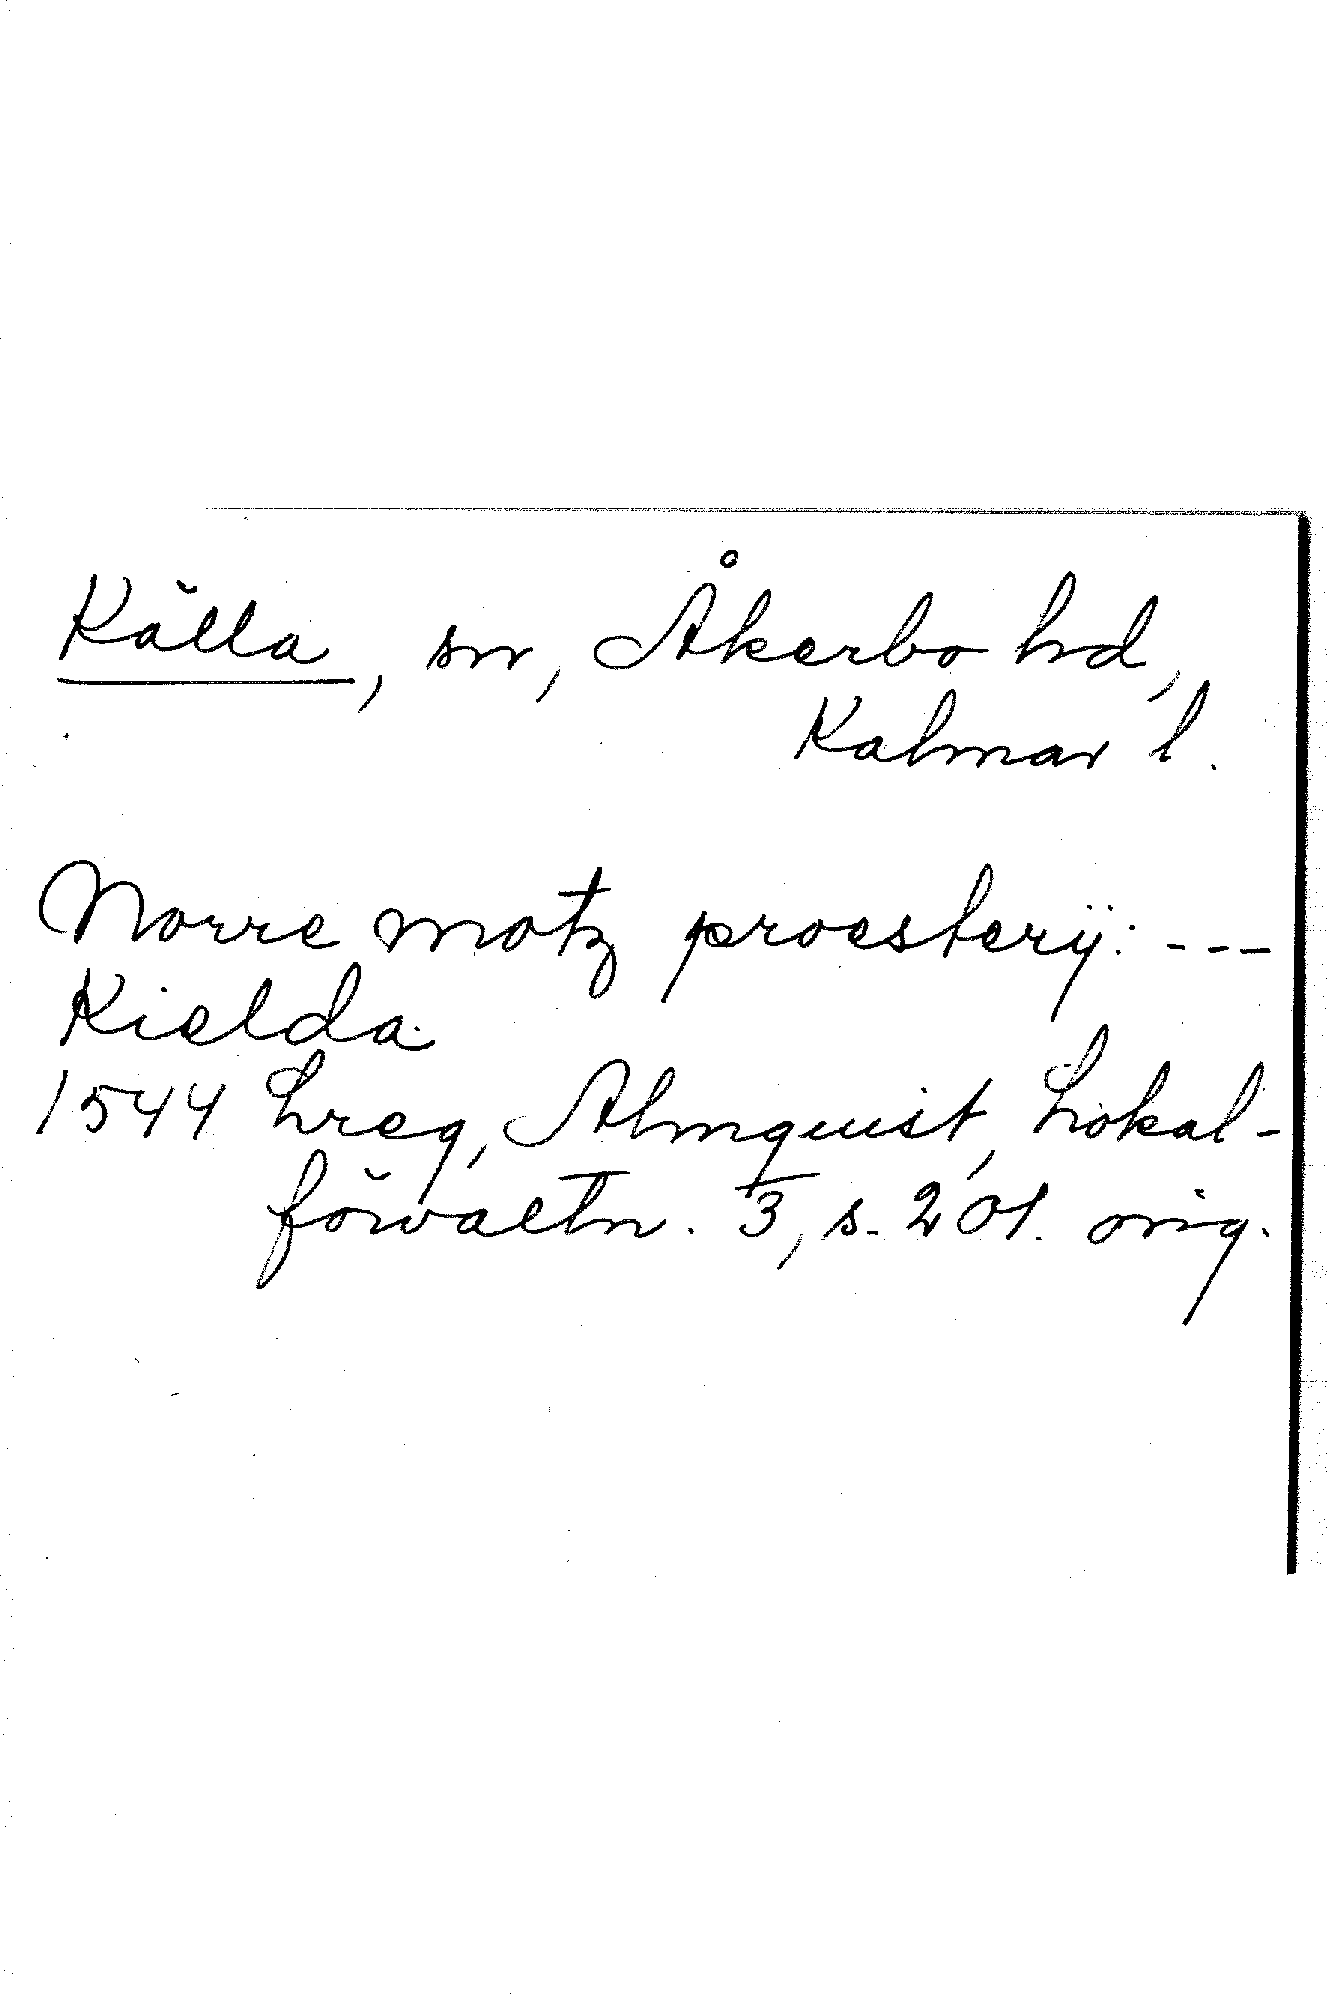 Källa, sn, Åkerbo hd,
Kalmar l.
Norre motz proesterij: ---
Kielda
1544 Lreg, Almquist, Lokal-
förvaltn. 3, s. 201. orig.